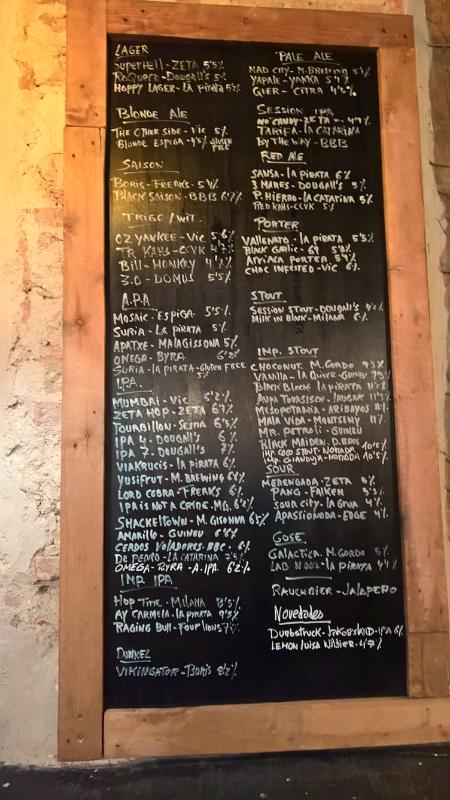 LAGER
SuperHell - ZETA 5'5%
RaQuera - Dougall's 5%
HOPPY LAGER - La pirata 5%
BLONDE ALE
THE OTHER SIDE - Vic 5%
BLONDE ESPIGA - 4'5% Gluten FREE
SAISON
BORIS - FREAKS - 5'4%
BLACK SAISON - BBB 6'7%
TRIGO/WIT.
OZ YANKEE - Vic 5'6%
TR KAHS - CCVK
Bill - MONKEY 4'%
3.0 - DOMUS 5'5%
A.P.A
MOSAIC - ESPIGA 5'5%
SURIA - La PIRATA 5%
APATXE - MALAGISSONA 5%
OMEGA - BYRA 6'2%
SURIA - la PIRATA - Gluten FREE 5%
IPA
MUMBAI - Vic 6'2%
ZETA HOP - ZETA 6'7%
TOURBILLON - SESMA 6'5%
IPA 4 - DOUGALL'S 6%
IPA 7 - DOUGALL'S 7%
VIAKRUCIS - la PIRATA 6%
YUSIFRUT - M. BREWING 6%
LORD COBRA - FREAKS 6%
IPA is NOT A CRIME - MG. 6'2%
SHACKELTOWN - M. GISONNA 6'5%
AMARILLO - GUINEU 6'5%
CERDOS VOLADORES - BBC - 6%
DE PEDRO - LA CATARINA 7'5%
OMEGA - BYRA - A.IPA. 6'2%
IMP. IPA
HOP TIME - MILANA 8'5%
AY CARMELA - la PIRATA 9'5%
RAGING BULL - FOUR lions
DUNKEL
VIKINGATOR - BORIS 8'2%
PALE ALE
MAD CITY - M. BREWING 5'%
YAPALE - YAKKA 5'%
QUER - CITRA 4'5%
SESSION IPA
NO CANDY - ZETA - 4'7%
TARIFA - la CATARINA
BY THE WAY - BBB
RED ALE
SANSA - la PIRATA 6%
3 MARES - DOUGALL'S 5%
P. HIERRO - la CATARINA 5%
RED KAHS - CCVK 5%
PORTER
VALLENATO - la PIRATA 5'5%
BLACK GARLIC - 69 5'8%
ARRIACA PORTER 5'9%
CHOC INFESTED - Vic 6%
STOUT
SESSION STOUT - DOUGALL'S
MILK IN BLACK - MILANA 6%
IMP. STOUT
CHOCONUT. M. GORDO 9'5%
VANILLA - la QUINCE - GUINEU
BLACK BLOCK la PIRATA 11'%
AUPA TOVARISCH - LAUGAR 11'5%
MESOPOTAMIA - ARIBAYOS 8%
MALA VIDA - MONTSENY 11%
MR. PETROLI - GUINEU
BLACK MAIDEN. D. BROS
IMP. COCO STOUT - NOMADA 10'5%
IMP. GIANDUJA - NOMADA 10'5%
SOUR
MERENGADA - ZETA %
PANG - FALKEN 5'5%
SOUR CITY - la GRUA 4%
APASSIONADA - EDGE 4%
GOSE
GALACTICA. M. GORDO 5%
LAB N 002 - la PIRATA 4'4%
RAUCHBIER - JALAPEÑO
Novedades
DUMBSTRUCK - JAKOBSLAND - IPA 6%
LEMON LUISA NÄBIER - 4'7%